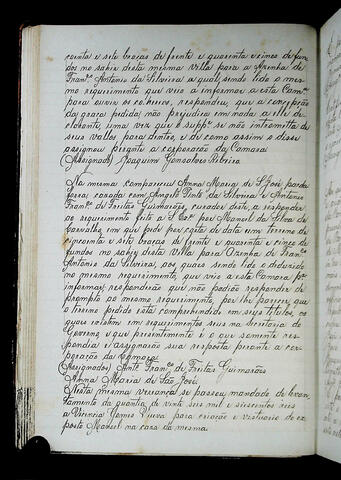 coenta e sete braças de frente e quarenta e cinco de fun
dos no sahir desta mesma villa para a Azenha de
Franco Antonio da Silveira a qual sendo lido o mes
mo requerimento que veio a informar a esta Camra
para ouvir os co-heréos, respondeu, que a concepção
da graça pedida não prejudica em nada a elle de
clarante, uma vez que o suppe se não intrometta de
seus vallos para dentro, e de como assim o disse
assignou perante a corporação da Camara
(Assignado) Joaquim Gonsalves Ribeiro
Na mesma compareceu Anna Maria de S. José, parda
forra casada com Angelo Pinto da Silveira e Antonio
Franco de Freitas Guimarães, curador desta, a responder
ao requerimento feito a S. Exa por Manoel da Silva de
Carvalho, em que pede por carta de data um terreno de
cincoenta e sete braças de frente e quarenta e cinco de
fundos no sahir desta villa para Azenha de Franco
Antonio da Silveira, aos quaes sendo lido e declarado
ao mesmo requerimento, que veio a esta Camara pa
informar, responderão que não podião responder de
prompto ao mesmo requerimento, por lhe parecer que
o terreno pedido está comprehendido em seus titulos, os
quaes existem em requerimentos seus na Secretaria do
Governo e que presentemente é o que somente res
pondia e assignarão sua resposta perante a cor
poração da Camara
(Assignados) Anto Franco de Freitas Guimarães
Anna Maria de São José.
Nesta mesma vereança se passou mandado de levan
tamento da quantia de vinte seis mil e seiscentos reis
a Vicencia Gomes Vieira para criação e vestuario do ex
posto Manoel na casa da mesma